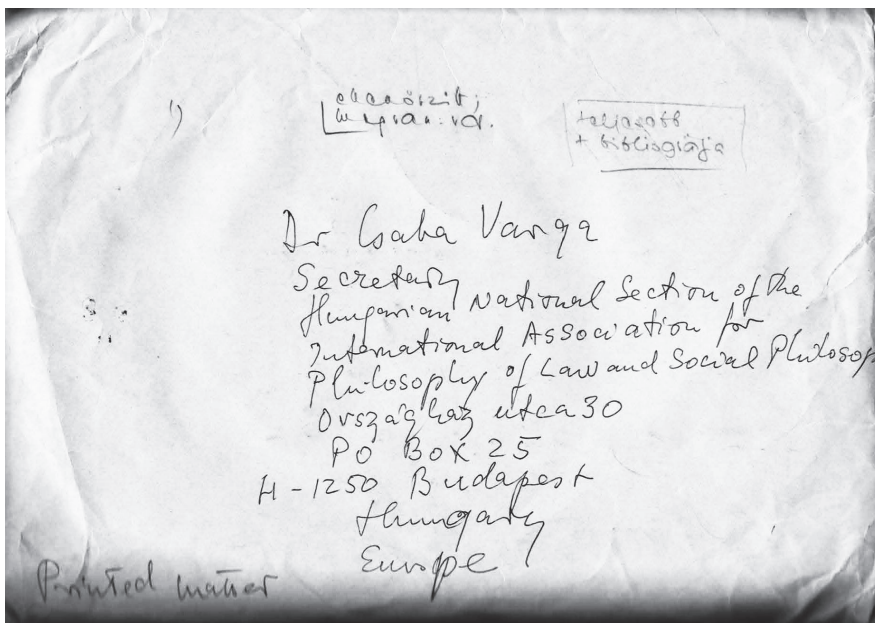 1)
teljesebb
+ bibliográfia
Dr Csaba Varga
Secretary
Hungarian National Section of the
International Association for
Philosophy of Law and Social Philosop
Országház utca 30
PO Box 25
H-1250 Budapest
Hungary
Europe
Printed matter